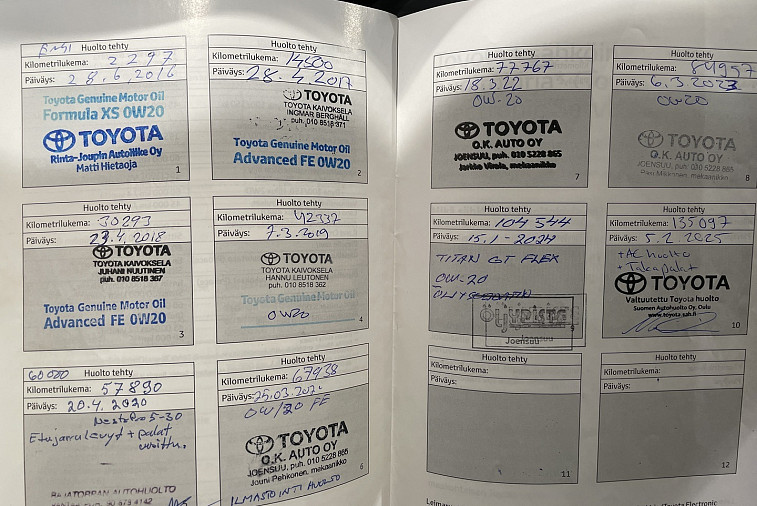 Huolto tehty
Kilometrilukema: 2297
Päiväys: 28.6.2016
Toyota Genuine Motor Oil
Formula XS 0W20
TOYOTA
Rinta-Joupin Autoliike Oy
Matti Hietaoja
1
Huolto tehty
Kilometrilukema: 14500
Päiväys: 28.4.2017
TOYOTA
TOYOTA KAIVOKSELA
INGMAR BERGHÄLL
puh. 010 8518 371
Toyota Genuine Motor Oil
Advanced FE 0W20
2
Huolto tehty
Kilometrilukema: 30293
Päiväys: 23.4.2018
TOYOTA
TOYOTA KAIVOKSELA
JUHANI NUUTINEN
puh. 010 8518 367
Toyota Genuine Motor Oil
Advanced FE 0W20
3
Huolto tehty
Kilometrilukema: 42332
Päiväys: 7.3.2019
TOYOTA
TOYOTA KAIVOKSELA
HANNU LEUTONEN
puh. 010 8518 362
Toyota Genuine Motor Oil
0W20
4
Huolto tehty
60000
Kilometrilukema: 57890
Päiväys: 20.4.2020
5-30
Etujarrulevyt + palat
uusittu.
AUTOHUOLTO
Huolto tehty
Kilometrilukema: 67938
Päiväys: 25.03.202
0W/20 FE
TOYOTA
O.K. AUTO OY
JOENSUU, puh. 010 5228 865
Jouni Pehkonen, mekaanikko
6
ILMASTOINTI HUOLTO
Huolto tehty
Kilometrilukema: 77767
Päiväys: 18.3.22
0W-20
TOYOTA
O.K. AUTO OY
JOENSUU, puh. 020 5228 865
Jarkko Virola, mekaanikko
7
Huolto tehty
Kilometrilukema: 84957
Päiväys: 6.3.2023
0W20
TOYOTA
O.K. AUTO OY
JOENSUU, puh. 020 5228 865
Mikkonen, mekaanikko
8
Huolto tehty
Kilometrilukema: 104 544
Päiväys: 15.1-2024
TITAN GT FLEX
0W-20
Öljypiste
Joensuu
9
Huolto tehty
Kilometrilukema: 135097
Päiväys: 5.2.2025
+AC huolto
+ Takapalat
TOYOTA
Valtuutettu Toyota huolto
Suomen Autohuolto Oy, Oulu
www.toyota-sah.fi
10
Huolto tehty
Kilometrilukema:
Päiväys:
11
Huolto tehty
Kilometrilukema:
Päiväys:
12
Toyota Electronic